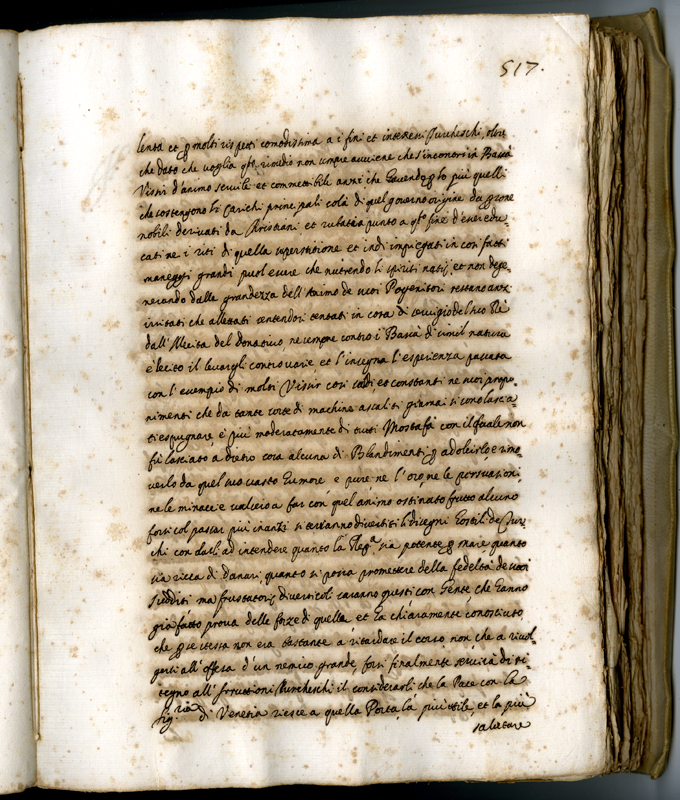 517.
lenta et p molti rispetti comodissima a i fini et interessi Turcheschi, oltre
che dato che voglia q.to rimedio non sempre avviene che s'incontri in Bassà
Visiri d'animo servile et commettibile anzi che havendo p lo più quelli
che sostengono li carichi principali colà di quel governo origine da persone
nobili derivati da Christiani et rubati a punto a q.to fine d'esser edu-
cati ne i riti di quella superstitione et indi impiegati in così fatti
maneggi grandi puol essere che nutrendo li spiriti natij, et non dege-
nerando dalle grandezza dell'Animo de suoi Pogenitori restano anzi
irritati che allettati sentendosi tentati in cosa di servigio del suo Rè
dall'Illecita del donativo, ne sempre contro i Bassà di simil natura
è lecito il levargli contro varie et l'insegna l'esperienza passata
con l'esempio di molti Vissir così saldi, et constanti ne suoi propo-
nimenti che da tante sorte di machine assaliti giamai si sono lascia
ti espugnare, e più moderatamente di tutti Mostafà con il quale non
fù lasciato a dietro cosa alcuna di Blandimenti p adolcirlo, e rimo-
verlo da quel suo vasto humore e pure ne l'oro, ne le persuasioni
ne le minacie valsero a far con quel animo ostinato frutto alcuno
forsi col passar più inanzi si terranno divertiti li disegni hostili de Tur-
chi con darli ad intendere quanto la Rep.a sia potente p mare, quanto
sia ricca di danari, quanto si possa promettere della fedeltà de suoi
sudditi ma frustatorij diverticoli saranno questi con Gente che hanno
già fatto prova delle forze di quella et ha chiaramente conosciuto
che p se stessa non era bastante a ritardare il corso, non che a rivol-
gersi all'offesa d'un nemico grande, forsi finalmente servirà di ri-
tegno all'Irruttioni Turchesche il considerarsi che la Pace con la
Sig.ria di Venetia riesce a quella Porta, la più utile, et la più
salutare